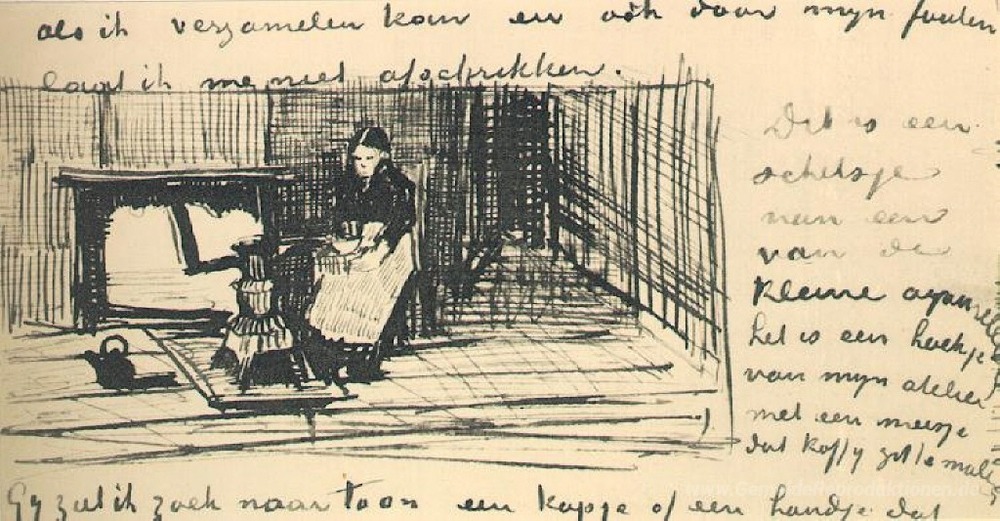 als ik verzamelen kan en ook door myn fouten
laat ik me niet afschrikken.
Dit is een
schetsje
naar een
van de
kleine aquarellen
het is een hoekje
van myn atelier
met een meisje
dat koffy zit te malen
Gy ziet ik zoek naar toon een kopje of een handje dat